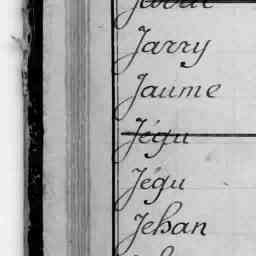 Jarry
Jaume
Jégu
Jégu
Jehan